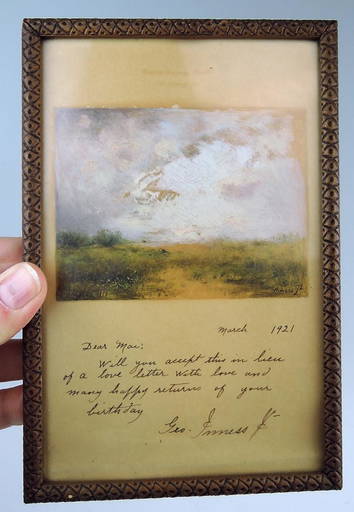 March 1921
Dear Mae:
Will you accept this in lieu
of a love letter with love and
many happy returns of your
birthday
Geo. Inness Jr